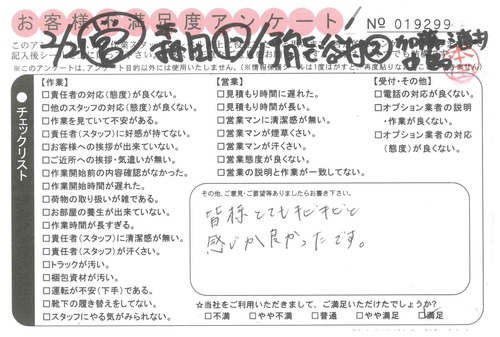 お客様満足度アンケート
No 019299
2/2 営
【作業】
□責任者の対応(態度)が良くない。
□他のスタッフの対応(態度)が良くない。
□作業を見ていて不安がある。
□責任者(スタッフ)に好感が持てない。
□お客様への挨拶が出来ていない。
□ご近所への挨拶・気遣いが無い。
□作業開始前の内容確認がなかった。
□作業開始時間が遅れた。
□荷物の取り扱いが雑である。
□お部屋の養生が出来ていない。
□作業時間が長すぎる。
□責任者(スタッフ)に清潔感が無い。
□責任者(スタッフ)が汗くさい。
□トラックが汚い。
□梱包資材が汚い。
□運転が不安(下手)である。
□靴下の履き替えをしてない。
□スタッフにやる気がみられない。
【営業】
□見積もり時間に遅れた。
□見積もり時間が長い。
□営業マンに清潔感が無い。
□営業マンが煙草くさい。
□営業マンが汗くさい。
□営業態度が良くない。
□営業の説明と作業が一致してない。
【受付・その他】
□電話の対応が良くない。
□オプション業者の説明
・作業が良くない。
□オプション業者の対応
(態度)が良くない。
●チェックリスト
その他、ご意見・ご要望等ありましたらお書き下さい。
皆様とてもキビキビと
感じが良かったです。
☆当社をご利用いただきまして、ご満足いただけたでしょうか?
□不満 □やや不満 □普通 □やや満足 □満足